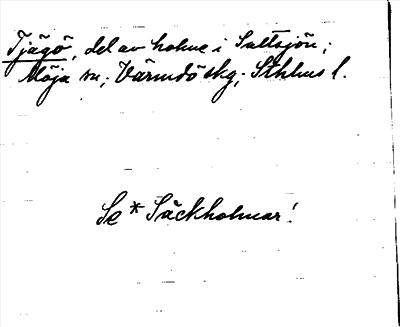 Tjägö, del av holme i Saltsjön;
Möja sn; Värmdö skg; Sthlms l.
Se * Säckholmar!